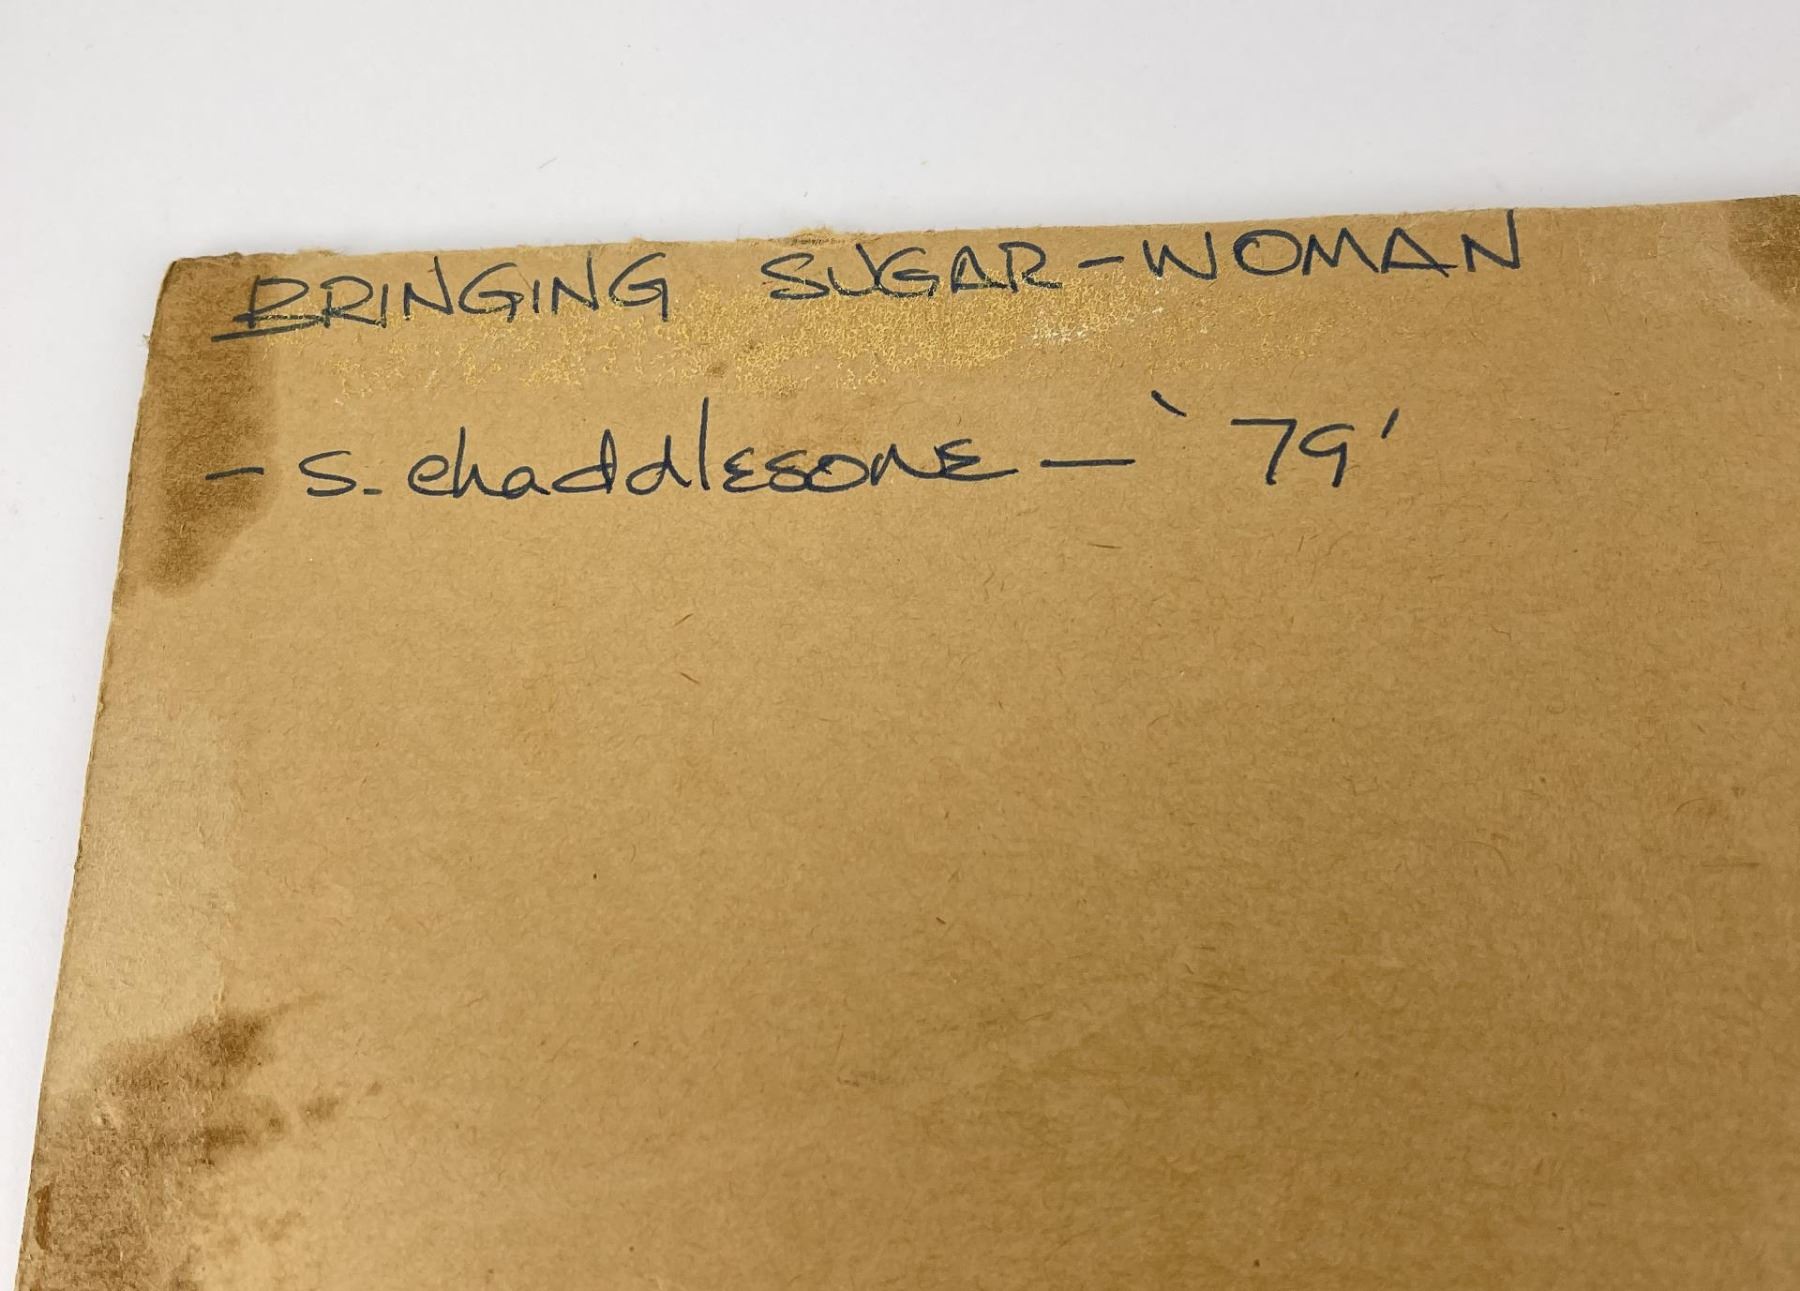 BRINGING SUGAR-WOMAN
- S. Chaddlesone - '79'